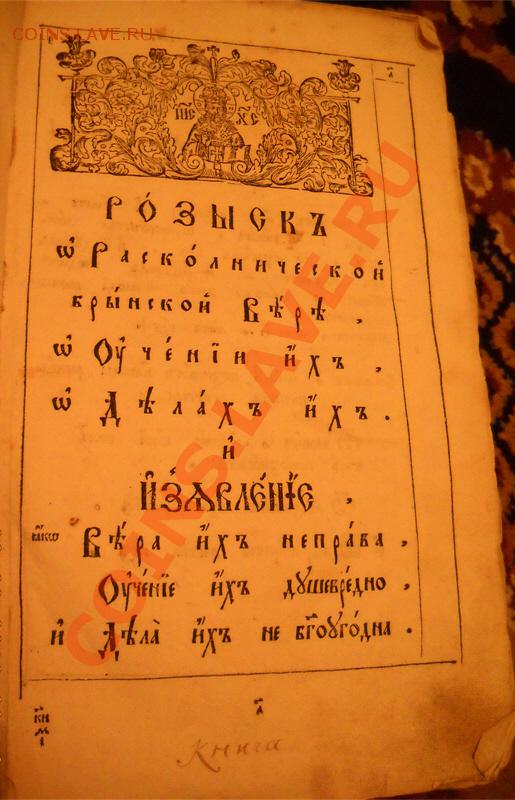 COINS.LAVE.RU
а҃
І҆И҃С Х҃С
РО́ЗЫСКЪ
ѡ҆ Раско́лнической
бры́нской Вѣ́рѣ ,
ѡ҆ Оу҆че́нїи и҆́хъ ,
ѡ҆ Дѣла́хъ и҆́хъ .
и҆
И҆З̾ѦВЛЕ́НЇЕ ,
ꙗ҆́кѡ Вѣ́ра и҆́хъ непра́ва ,
Оу҆че́нїе и҆́хъ душевре́дно ,
и҆ Дѣла̀ и҆́хъ не бг҃оуго́дна .
а҃
Книга
COINS.LAVE.RU